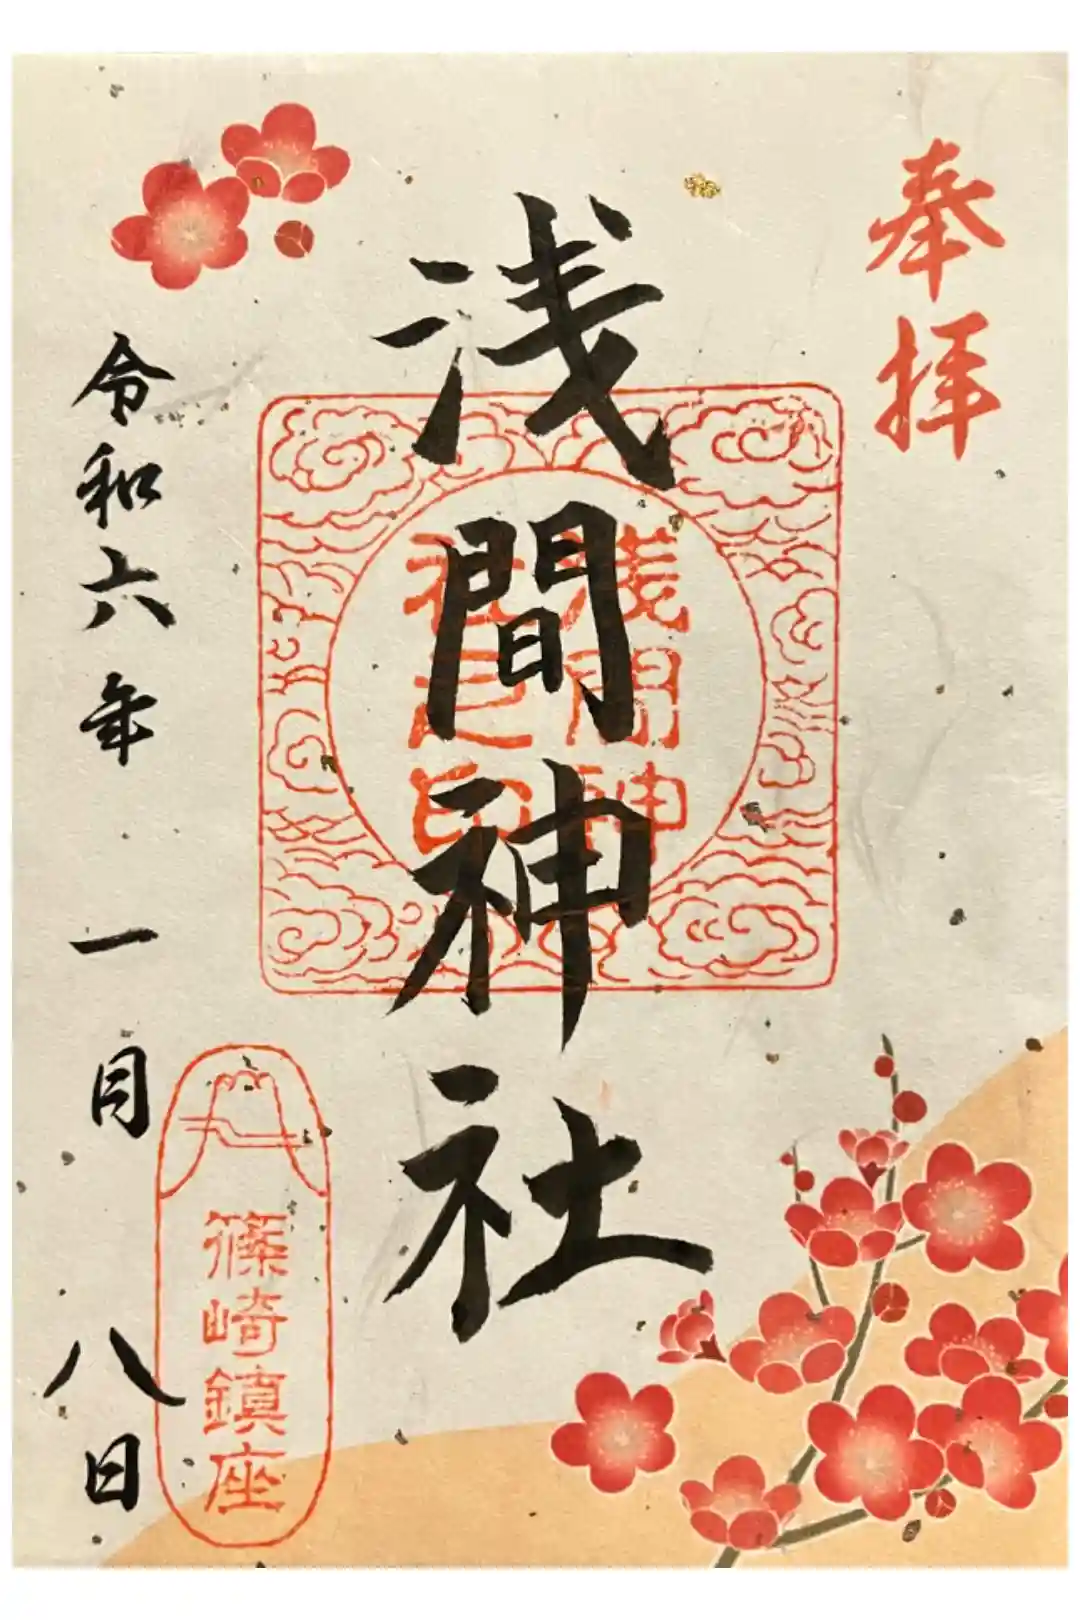 奉拝
浅間神社
浅間神
社之印
令和六年一月八日
篠崎鎮座